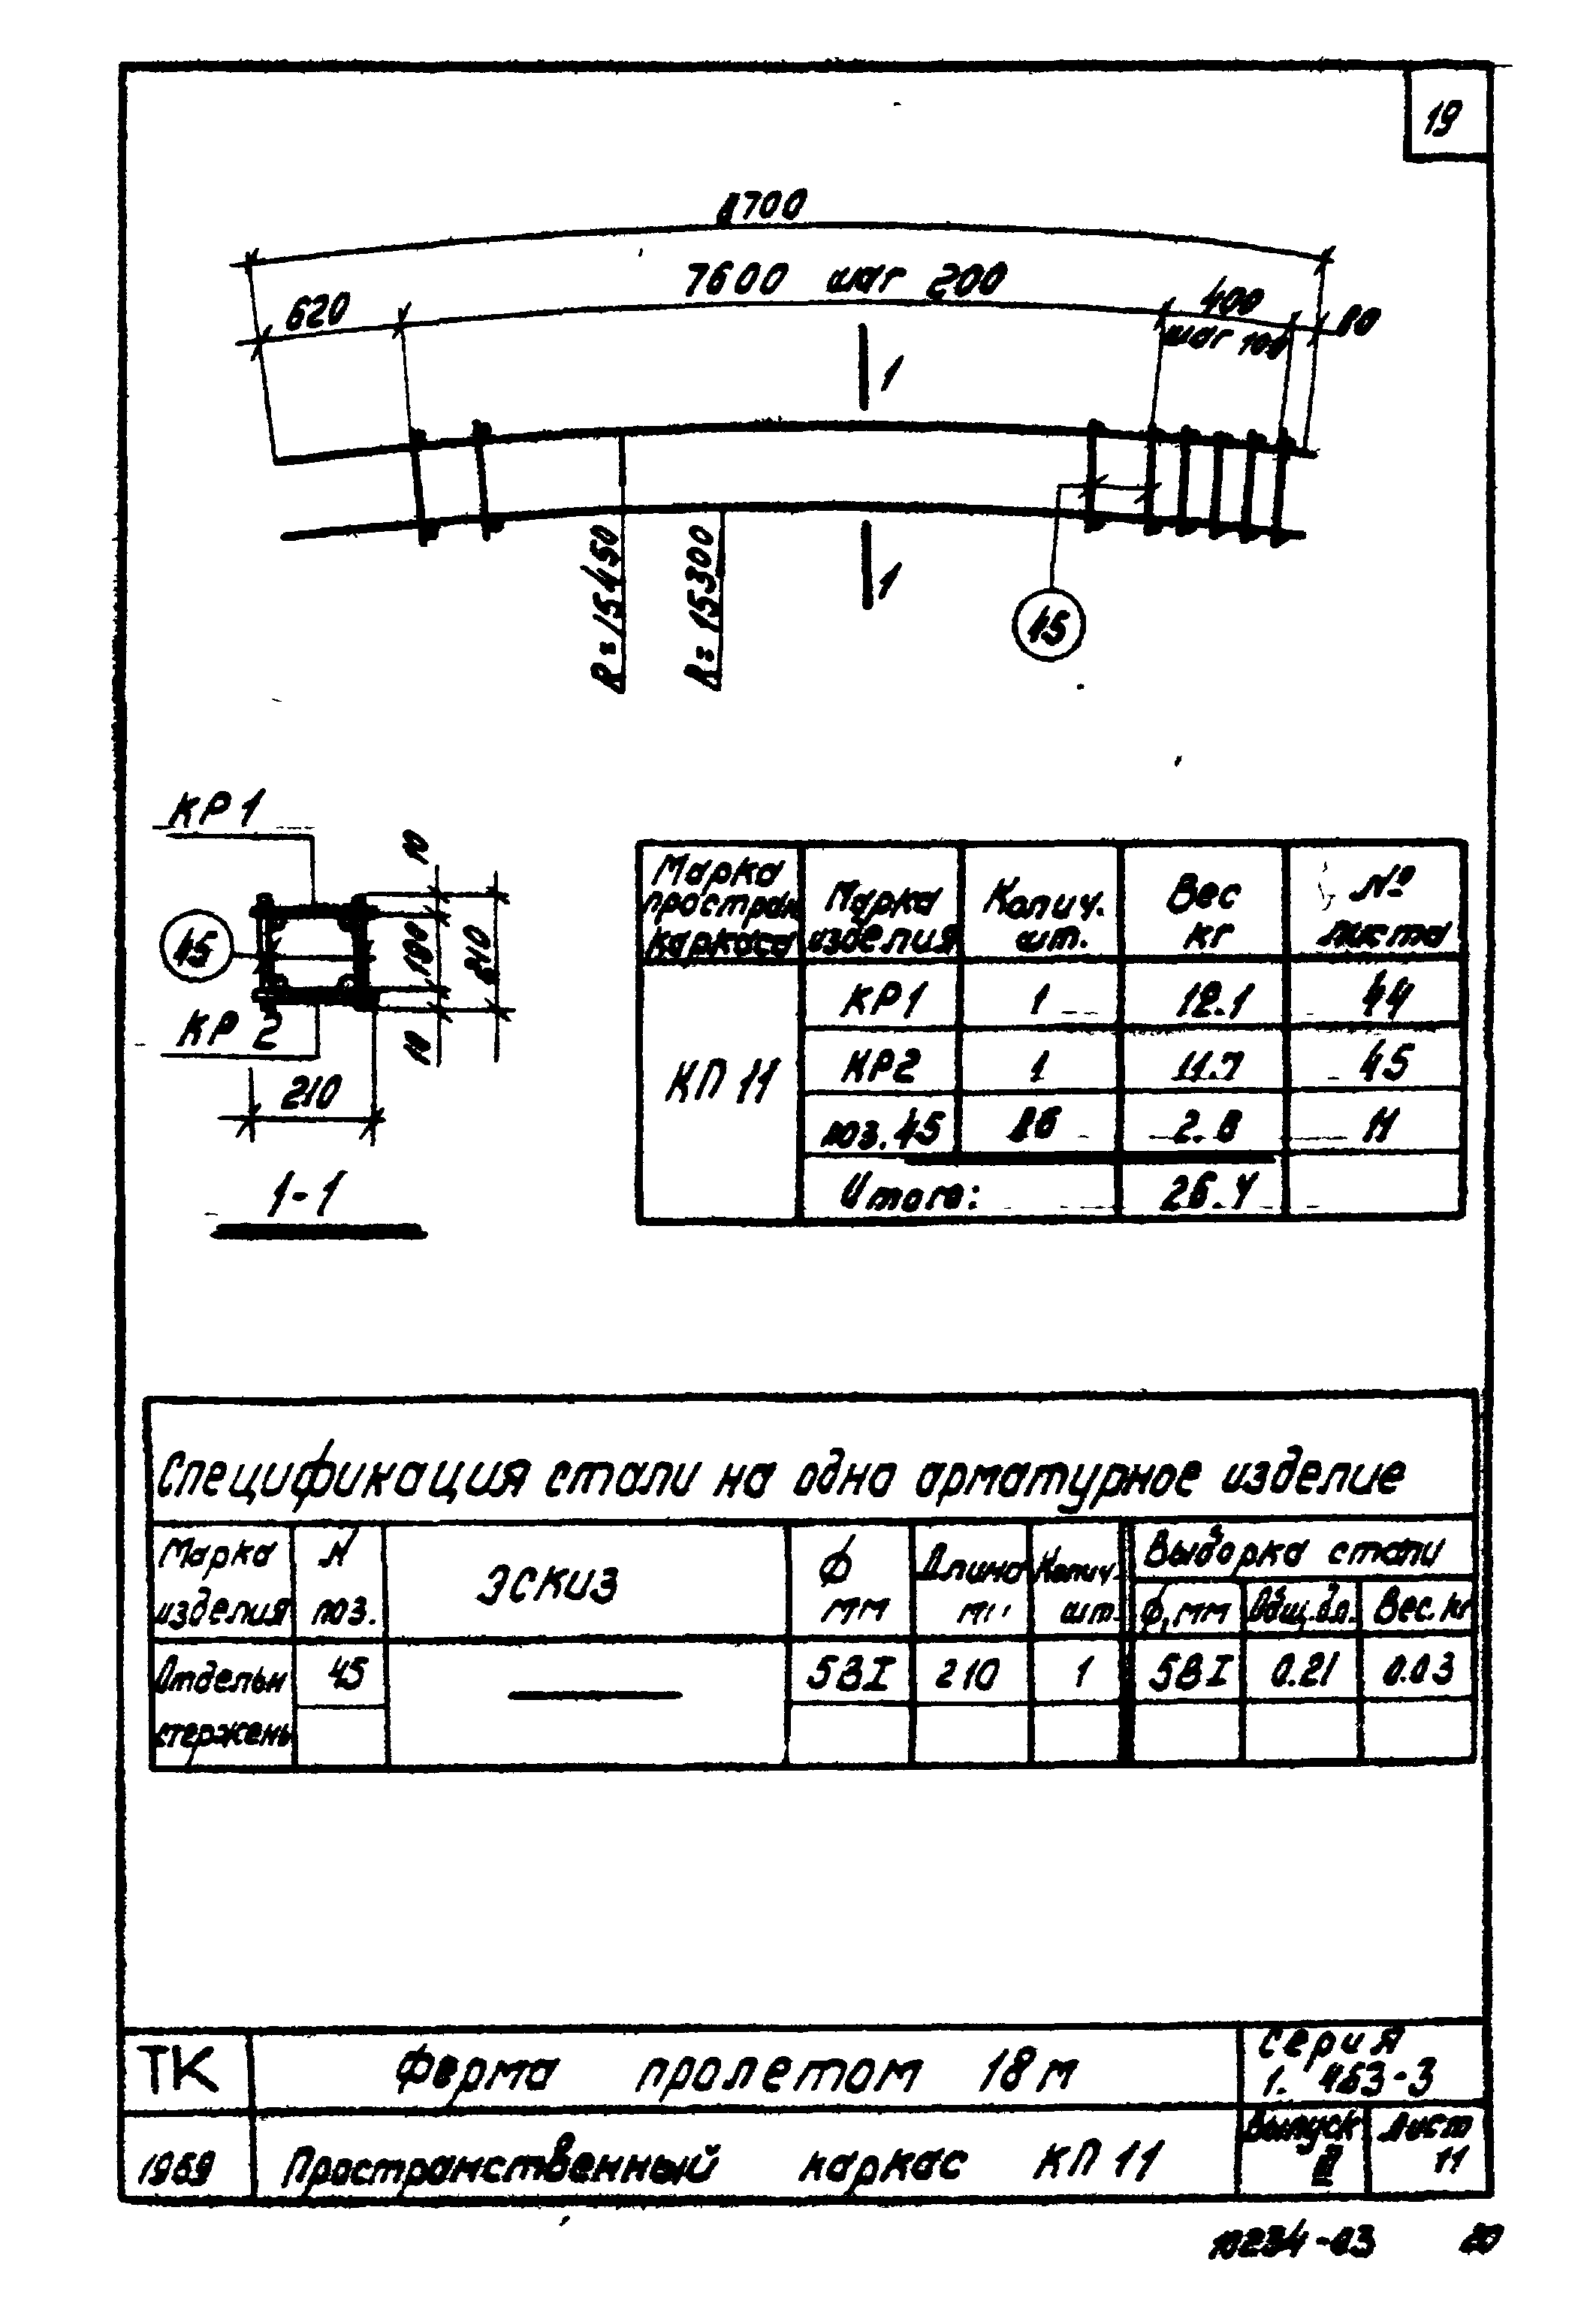 19
8700
7600 шаг 200
620
400
шаг 100
80
1
1
R=15450
R=15300
45
КР1
45
КР 2
10
190
210
10
210
1-1
Марка
простран
каркаса
Марка
изделия
Колич.
шт.
Вес
кг
№
листа
КП 11
КР1 1 12.1 44
КР2 1 11.7 45
поз. 45 86 2.6 11
Итого: 26.4
Спецификация стали на одно арматурное изделие
Марка
изделия
N
поз.
Эскиз
Ф
мм
Длина
мм
Колич.
шт.
Выборка стали
Ф, мм Общ. дл. Вес. кг
Отдельн
стержень
45 5ВI 210 1 5ВI 0.21 0.03
ТК
Ферма пролетом 18 м
Серия
1. 463-3
1969
Пространственный каркас КП 11
Выпуск
III
Лист
11
10234-03 20